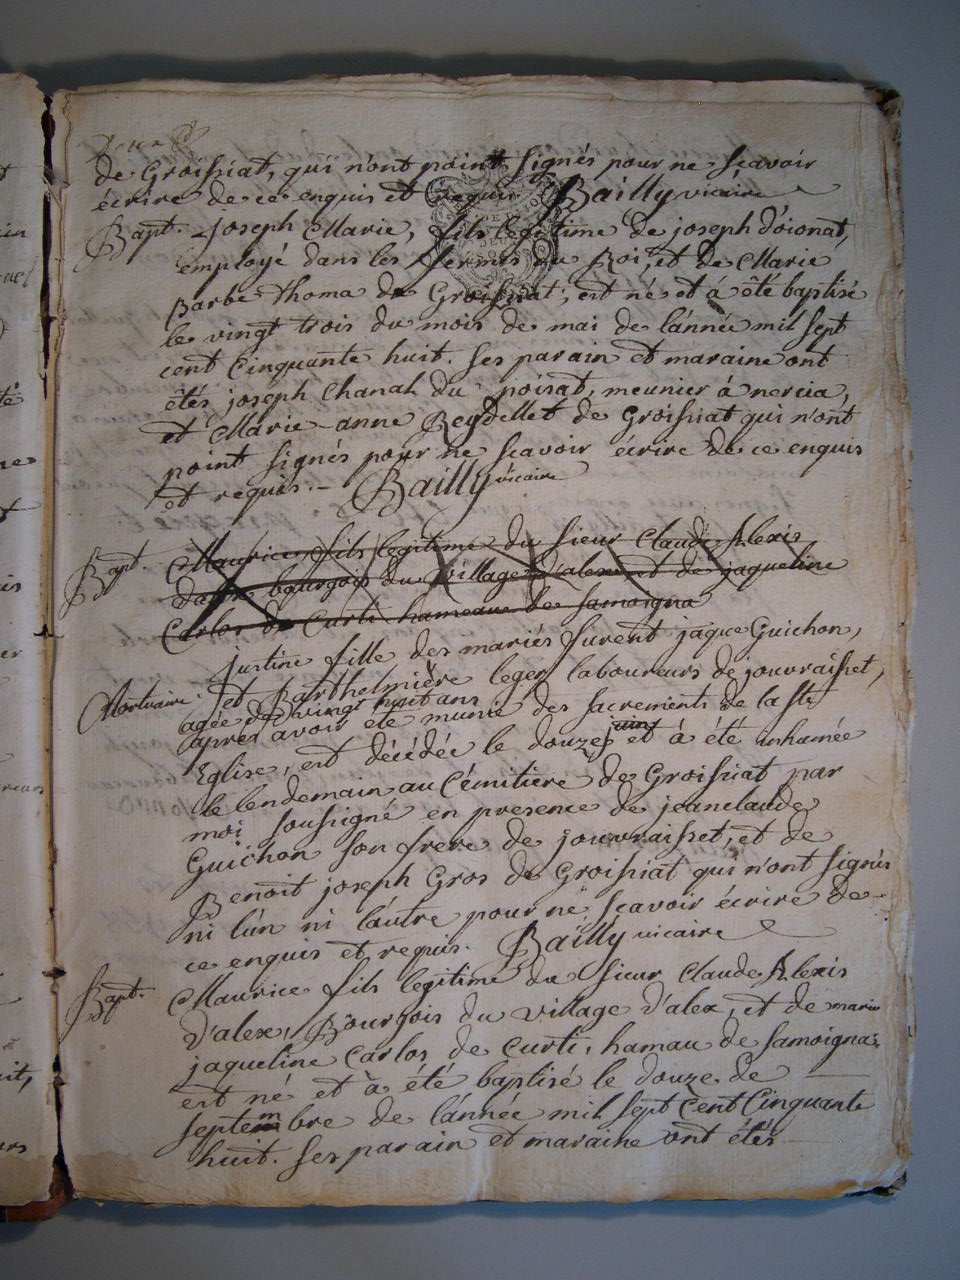 de Groissiat, qui n'ont point signés pour ne sçavoir
écrire de ce enquis et requis Bailly vicaire
Bapt. Joseph Marie, fils legitime de joseph d'oionat,
employé dans les fermes du Roi, et de Marie
Barbe thoma de Groissiat, est né et à été baptisé
le vingt trois du mois de mai de l'année mil sept
cent Cinquante huit. Ses parain et maraine ont
étés joseph Chanal du poisat, meunier à nercia,
et Marie-anne Reydellet de Groissiat qui n'ont
point signés pour ne scavoir écrire de ce enquis
et requis. - Bailly vicaire
Bapt. Maurice fils legitime du sieur Claude Alexis
bourgois du village d'alex et de jaqueline
Carlos de Curti hameau de Samoigna
justine fille des mariés furent jaque Guichon,
Mortuaire et Barthelmière leger laboureurs de jouvraisset,
agée de vingt huit ans
après avoir été munie des sacrements de la Ste
Eglise, est décédée le douze juin et à été inhumée
le lendemain au Cémitiere de Groissiat par
moi soussigné en presence de jeanclaude
Guichon son frere de jouvraisset, et de
Benoit joseph Gros de Groissiat qui n'ont signés
ni l'ún ni l'autre pour ne scavoir écrire de
ce enquis et requis. Bailly vicaire
Bapt. Maurice fils legitime du sieur Claude Alexis
D'alex, Bourgois du village d'alex, et de marie
jaqueline Carlos de Curti, hamau de Samoigna,
est né et à été baptisé le douze de
septembre de l'année mil sept Cent Cinquante
huit. Ses parain et maraine ont étés